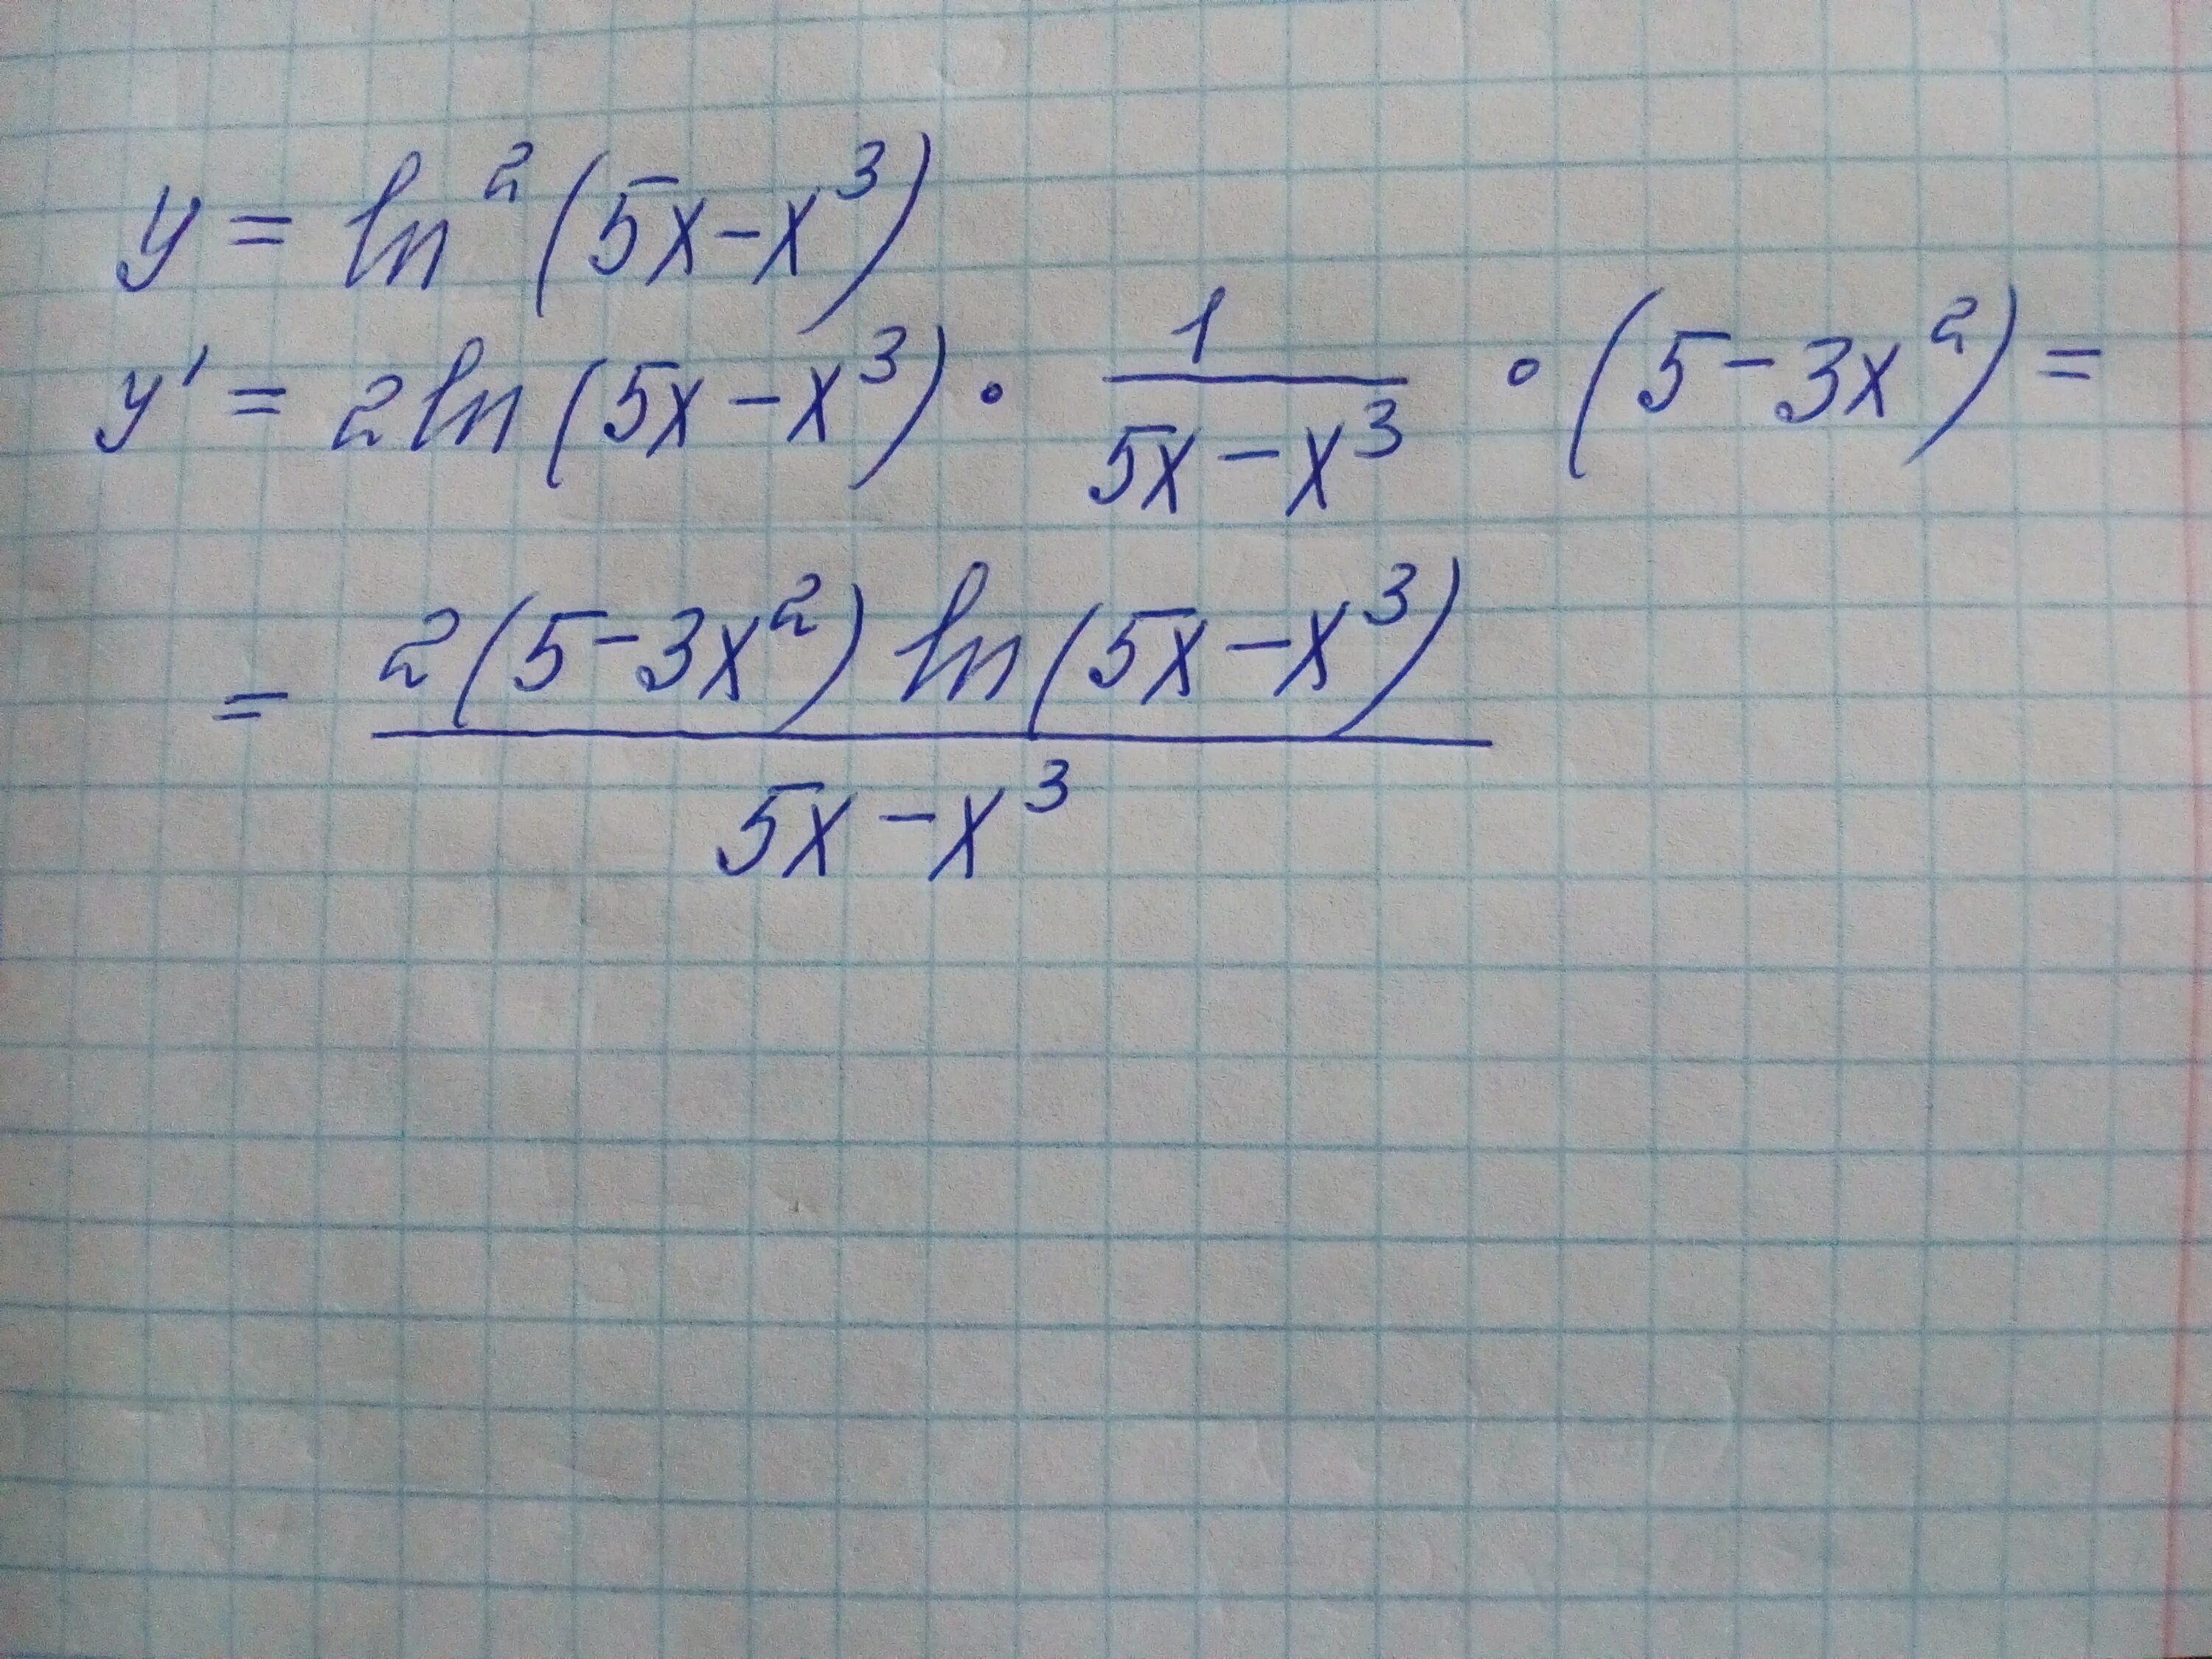 y = ln²(5x-x³)
y' = 2ln(5x-x³) · 1/(5x-x³) · (5-3x²) =
= 2(5-3x²) ln(5x-x³)/(5x-x³)